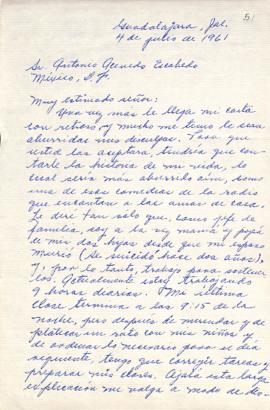 51
Guadalajara, Jal.
4 de julio de 1961
Sr. Antonio Acevedo Escobedo
México, D.F.
Muy estimado señor:
Una vez más le llega mi carta
con retraso y mucho me temo le sean
aburridas mis disculpas. Para que
usted las aceptara, tendría que con-
tarle la historia de mi vida, lo
cual sería más aburrido aún, como
una de esas comedias de la radio
que encantan a las amas de casa.
Le diré tan sólo que, como jefe de
familia, soy a la vez mamá y papá
de mis dos hijos desde que mi esposo
murió (Se suicidó hace dos años).
y, por lo tanto, trabajo para sostener
los. Actualmente estoy trabajando
9 horas diarias. Mi última
clase termina a las 9.15 de la
noche, pero después de merendar y de
platicar un rato con mis niños y
de ordenar lo necesario para el día
siguiente, tengo que corregir tareas y
preparar mis clases. Ojalá esta larga
explicación me valga a modo de dis-